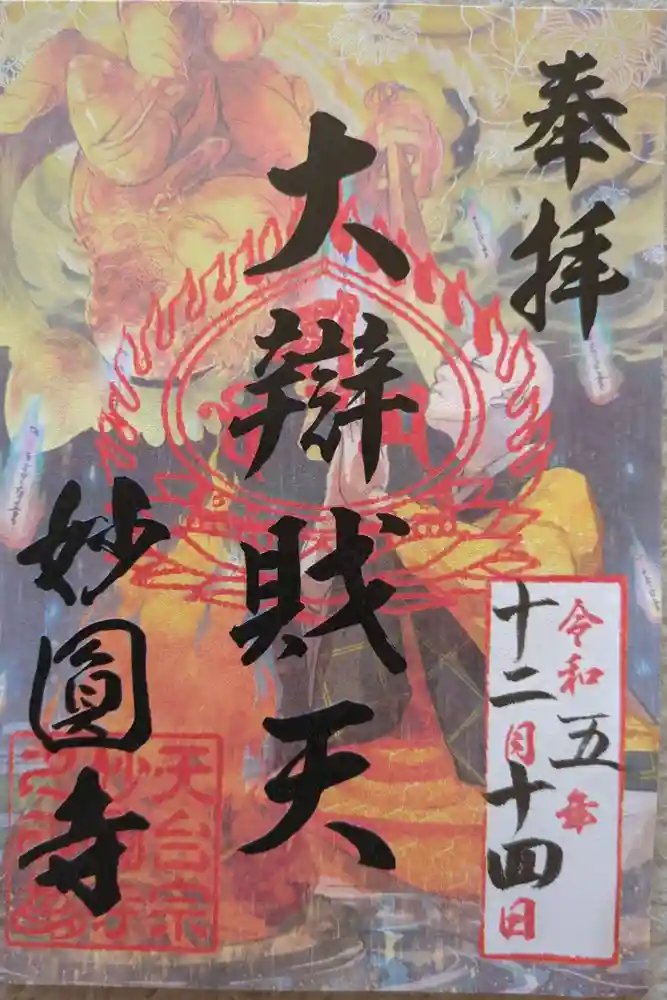 奉拝
令和五年
十二月十四日
大辯財天
妙圓寺
天台宗